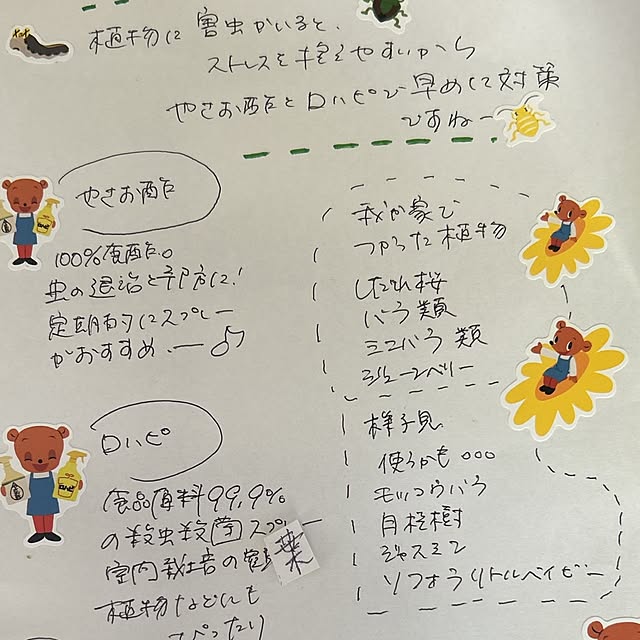 植物に 害虫がいると、
ストレスを抱えやすいから
やさお酢とロハピで早めして対策
ですねー
やさお酢
100%食酢。
虫の退治と予防に!
定期的にスプレー
がおすすめ。ー♪
ロハピ
食品原料99.9%
の殺虫殺菌スプレー
室内栽培の
葉
植物などにも
ぴったり
我が家で
つかった植物
しだれ桜
バラ類
ミニバラ類
ジューンベリー
様子見。
使うかも。。。
モッコウバラ
月桂樹
ジャスミン
ソフォラリトルベイビー